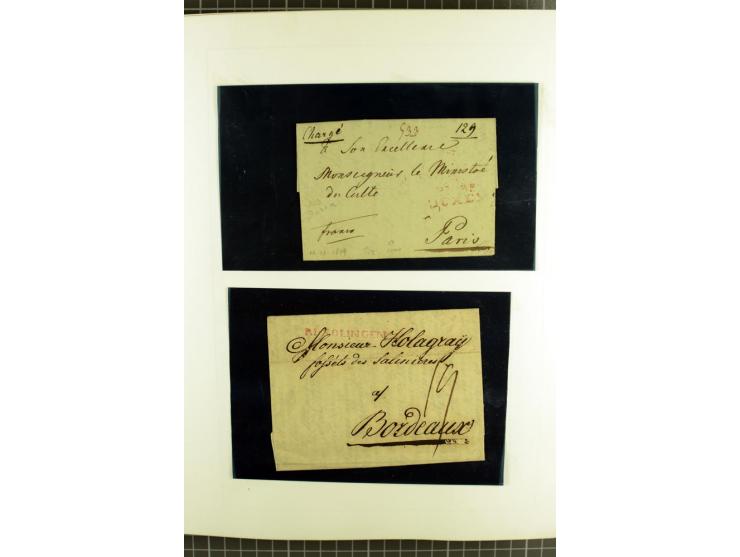 Chargé 533 129
à Son Excellence
Monseigneur le Ministre
du Culte
franco Paris
Monsieur Holagraÿ
fossés des Salinieres
à
Bordeaux